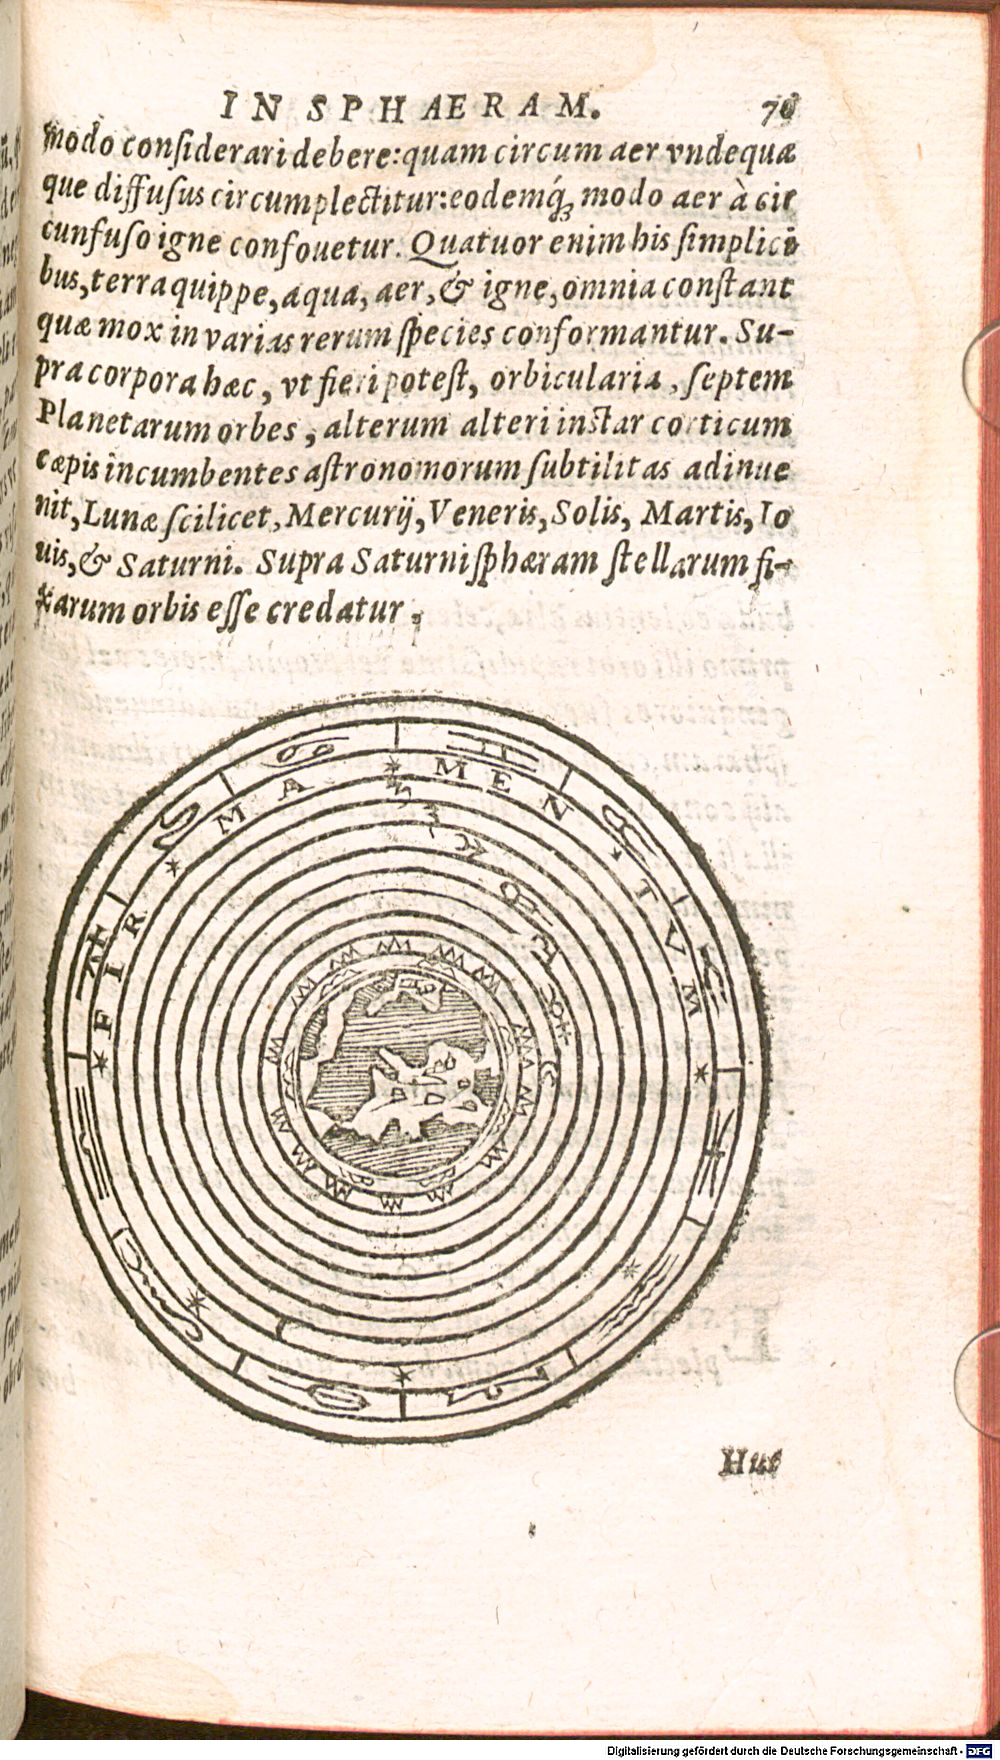 IN SPHAERAM. 70
modo conſiderari debere: quam circum aer vndequæ
que diffuſus circumplectitur: eodemq́; modo aer à cir
cunfuſo igne confouetur. Quatuor enim his ſimplici
bus, terra quippe, aqua, aer, & igne, omnia conſtant
quæ mox in varias rerum ſpecies conformantur. Su-
pra corpora hæc, vt fieri poteſt, orbicularia, ſeptem
Planetarum orbes, alterum alteri inſtar corticum
cæpis incumbentes aſtronomorum ſubtilitas adinue
nit, Lunæ ſcilicet, Mercurij, Veneris, Solis, Martis, Io
uis, & Saturni. Supra Saturni ſphæram ſtellarum fi-
xarum orbis eſſe credatur.
FIRMAMENTVM
Digitalisierung gefördert durch die Deutsche Forschungsgemeinschaft - DFG